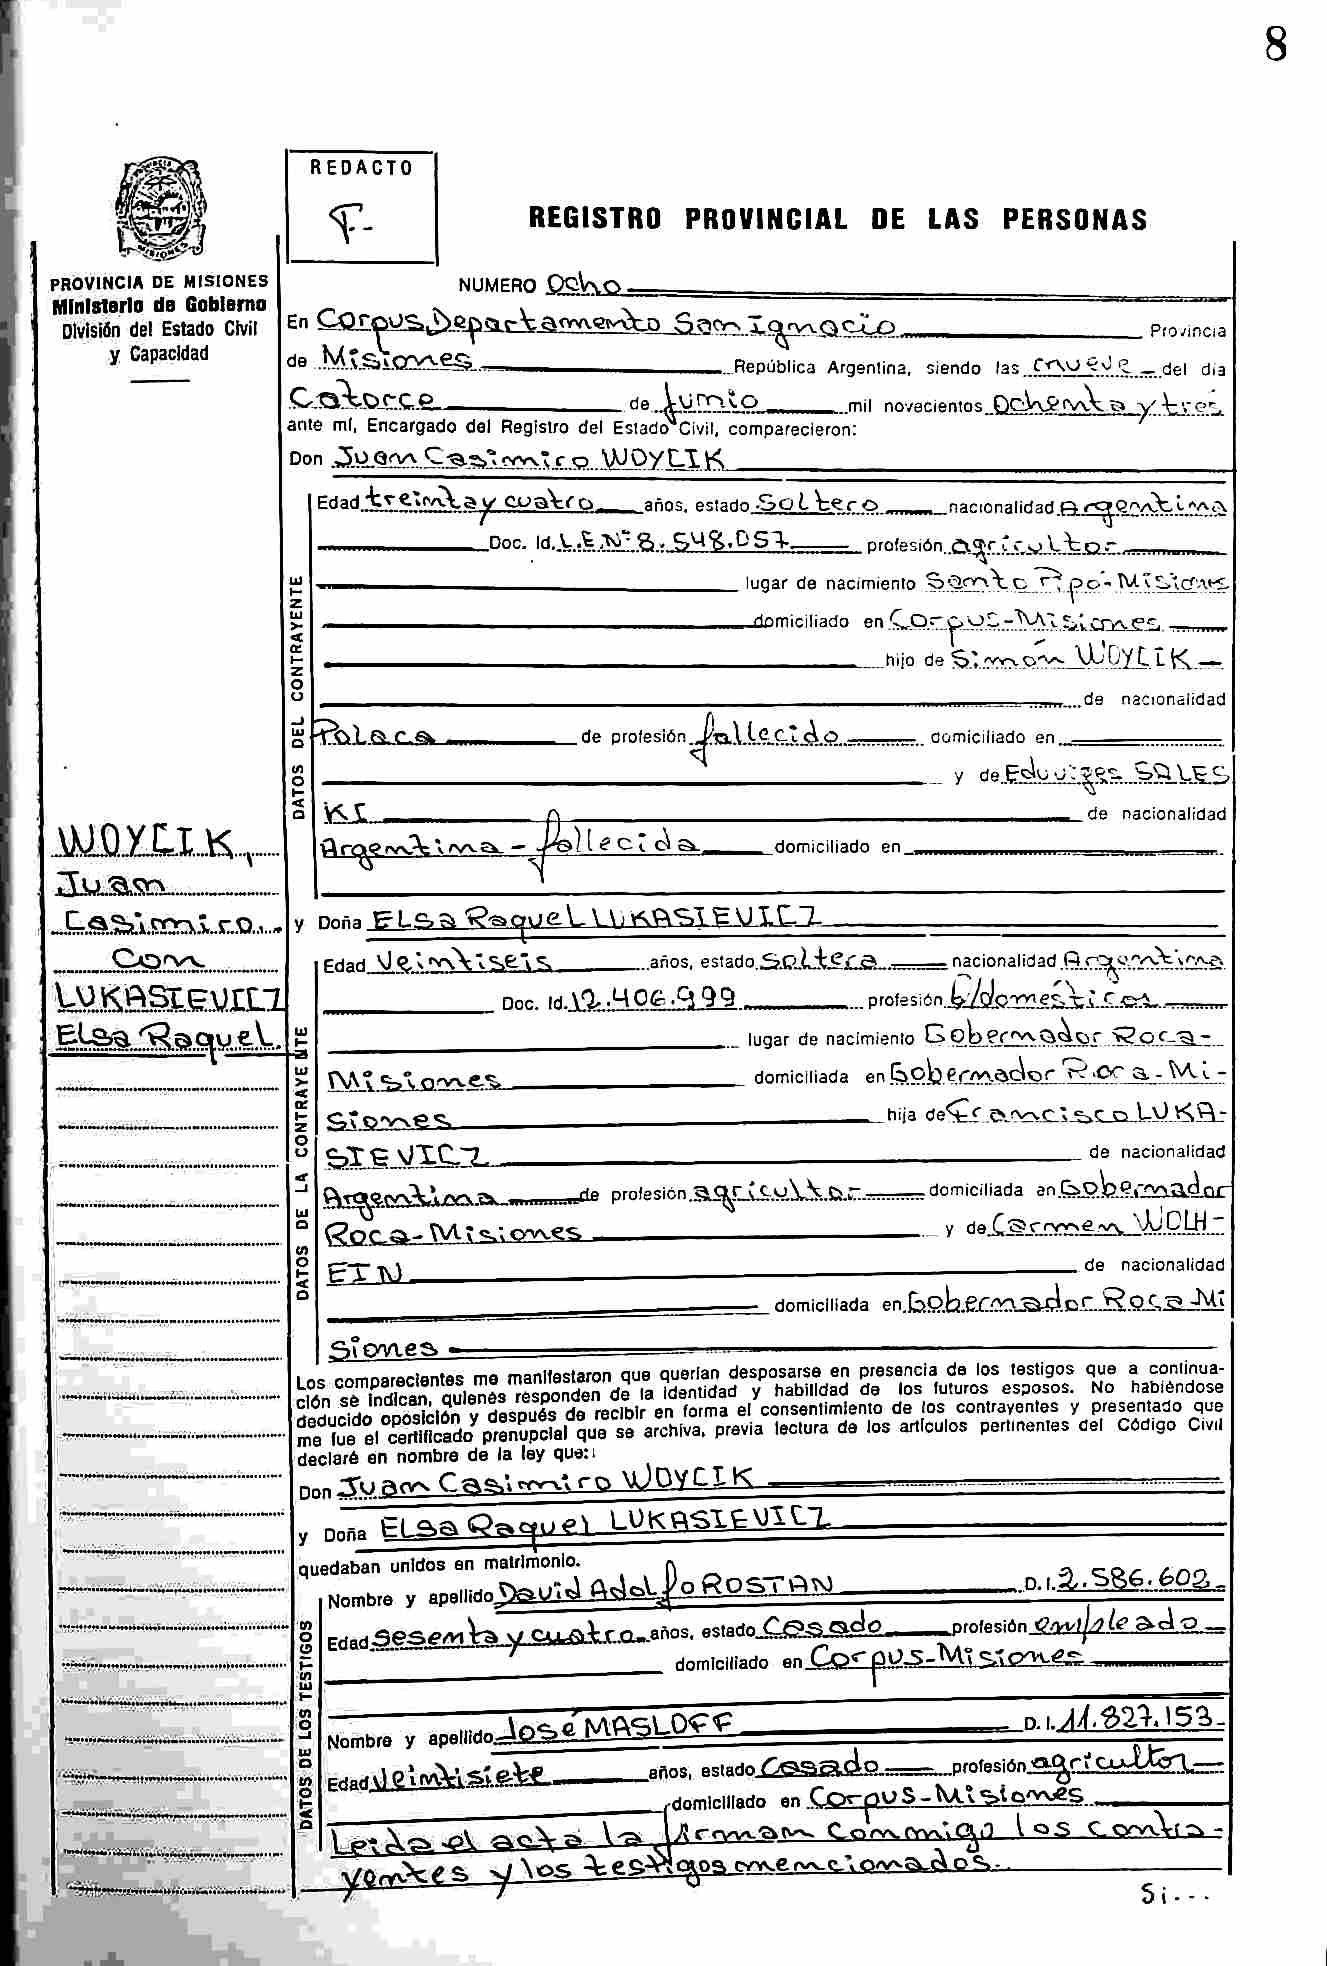 8
REDACTO
F.-
REGISTRO PROVINCIAL DE LAS PERSONAS
PROVINCIA DE MISIONES
Ministerio de Gobierno
División del Estado Civil
y Capacidad
NUMERO Ocho
En Corpus, Departamento San Ignacio Provincia
de Misiones República Argentina, siendo las nueve del día
Catorce de junio mil novecientos Ochenta y tres
ante mí, Encargado del Registro del Estado Civil, comparecieron:
Don Juan Casimiro WOYCIK
DATOS DEL CONTRAYENTE
Edad treinta y cuatro años, estado Soltero nacionalidad Argentina
Doc. Id. L.E.Nº 8.548.057 profesión agricultor
lugar de nacimiento Santo Pipó-Misiones
domiciliado en Corpus-Misiones
hijo de Simón WOYCIK
de nacionalidad
Polaca de profesión fallecido domiciliado en
y de Eduviges SALES
KI de nacionalidad
Argentina - fallecida domiciliado en
WOYCIK,
Juan
Casimiro.
Con
LUKASIEVICZ
Elsa Raquel.
y Doña ELSa RaqueL LUKASIEVICZ
DATOS DE LA CONTRAYENTE
Edad Veintiseis años, estado Soltera nacionalidad Argentina
Doc. Id. 12.406.999 profesión q/domésticos
lugar de nacimiento Gobernador Roca-
Misiones domiciliada en Gobernador Roca-Mi-
siones hija de Francisco LUKA-
SIEVICZ de nacionalidad
Argentina de profesión agricultor domiciliada en Gobernador
Roca-Misiones y de Carmen WOLH-
EIN de nacionalidad
domiciliada en Gobernador Roca-Mi
siones
Los comparecientes me manifestaron que querían desposarse en presencia de los testigos que a continua-
ción se indican, quienes responden de la identidad y habilidad de los futuros esposos. No habiéndose
deducido oposición y después de recibir en forma el consentimiento de los contrayentes y presentado que
me fue el certificado prenupcial que se archiva, previa lectura de los artículos pertinentes del Código Civil
declaré en nombre de la ley que:
Don Juan Casimiro WOYCIK
y Doña ELSa Raquel LUKASIEVICZ
quedaban unidos en matrimonio.
DATOS DE LOS TESTIGOS
Nombre y apellido David Adolfo ROSTAN D.I. 2.586.602
Edad sesenta y cuatro años, estado Casado profesión empleado
domiciliado en Corpus-Misiones
Nombre y apellido José MASLOFF D.I. 11.827.153
Edad Veintisiete años, estado Casado profesión agricultor
domiciliado en Corpus-Misiones
Leida el acta la firman conmigo los contra-
yentes y los testigos mencionados.
Si...